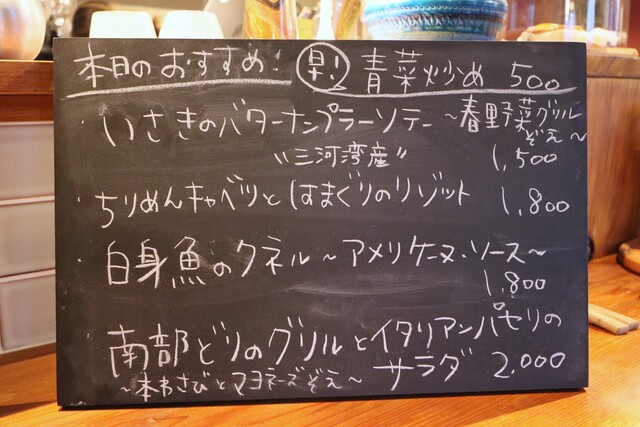 本日のおすすめ! 早! 青菜炒め 500
・いさきのバターナンプラーソテー ~春野菜グリルぞえ~
"三河湾産" 1,500
・ちりめんキャベツとはまぐりのリゾット 1,800
・白身魚のクネル ~アメリケーヌ・ソース~
1,800
・南部どりのグリルとイタリアンパセリの
サラダ 2,000
~本わさびとマヨネーズぞえ~